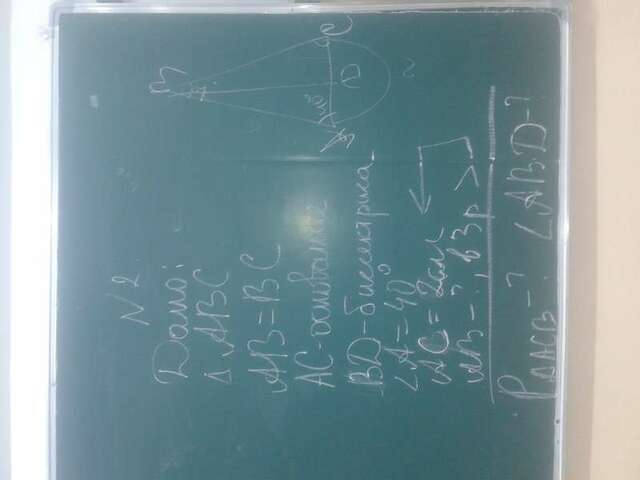 N 2
Дано:
Δ ABC
AB = BC
AC - основание
BD - биссектриса
∠A = 40°
AC = 2см
AB - ?, в 3р >
P ΔACB - ? ∠ABD - ?
B
A
C
D
40°